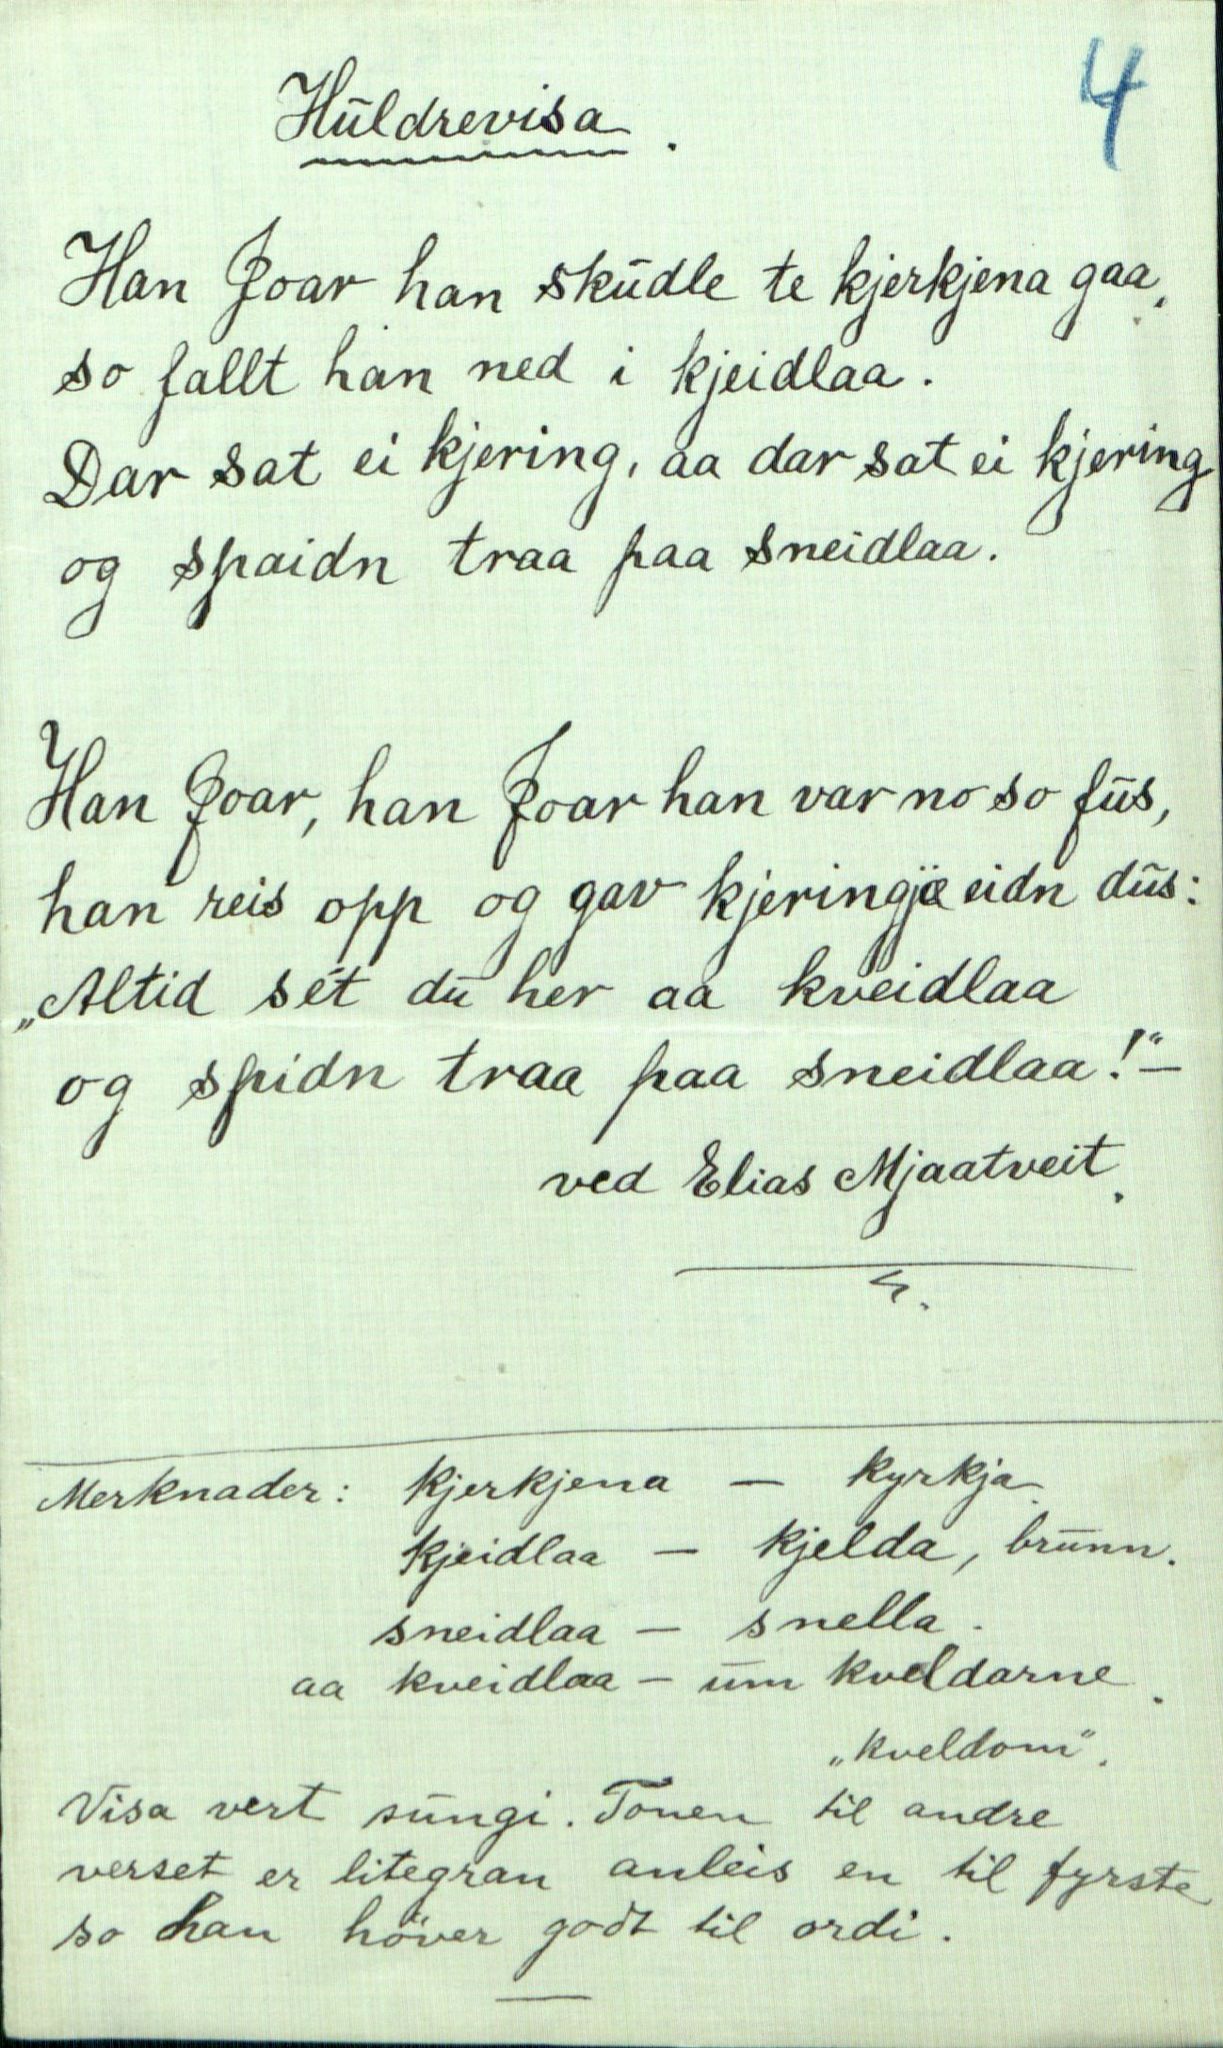 4
Huldrevisa.
Han Joar han skudle te kjerkjena gaa,
so fallt han ned i kjeidlaa.
Dar sat ei kjering, aa dar sat ei kjering
og spaidn traa paa sneidlaa.
Han Joar, han Joar han var no so fus,
han reis opp og gav kjeringjæ eidn dus:
„Altid sét du her aa kveidlaa
og spidn traa paa sneidlaa!“—
ved Elias Mjaatveit.
Merknader: kjerkjena — kyrkja.
kjeidlaa — kjelda, brunn.
sneidlaa — snella.
aa kveidlaa — um kveldarne.
„kveldom“.
Visa vert sungi. Tonen til andre
verset er litegran anleis en til fyrste
so han höver godt til ordi.